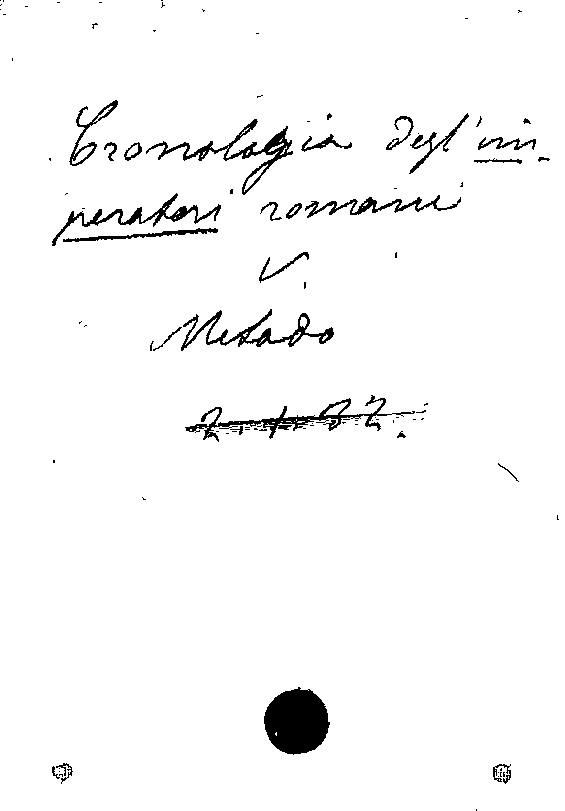 Cronologia degl'im-
peratori romani
V.
Metodo
2. 1. 82.